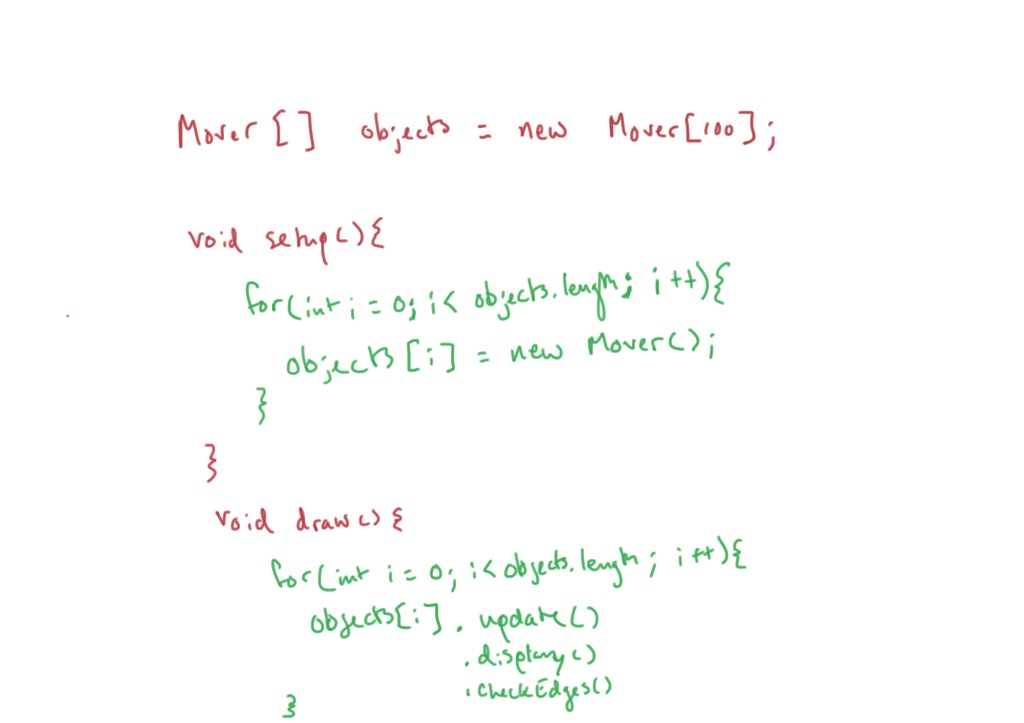 Mover [ ] objects = new Mover[100];
void setup(){
for(int i = 0; i < objects.length; i ++){
objects [i] = new Mover();
}
}
void draw() {
for(int i = 0; i < objects.length; i ++){
objects[i] . update()
. display()
. checkEdges()
}